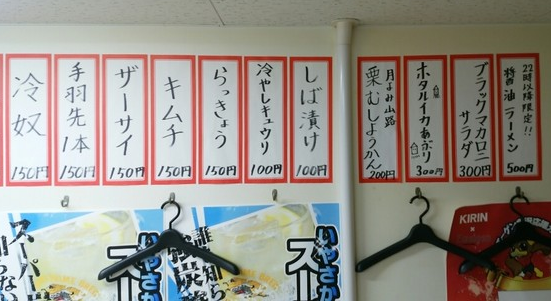 22時以降限定!!
醤油ラーメン
500円
ブラックマカロニ
サラダ
300円
ホタルイカあぶり
300円
月よみ山路
栗むしようかん
200円
しば漬け
100円
冷やしキュウリ
100円
らっきょう
150円
キムチ
150円
ザーサイ
150円
手羽先1本
150円
冷奴
150円
いやさか
スー
誰
知ら
炭
いやさか
スー
スーパー
知らな
KIRIN
×